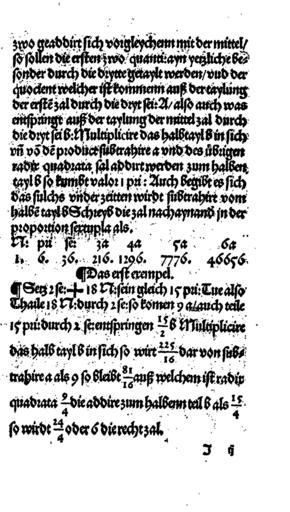 zwo geaddirt sich vorgleychenn mit der mittel/
so sollen die ersten zwo quantitayn yetzliche be⸗
sonder durch die drytte getaylt werden/vnd der
quocient welcher ist kommenn auß der taylung
der erstẽ zal durch die dryt sei: A/also auch was
entspringt auß der taylung der mittel zal durch
die dryt sei b: Multiplicire das halb tayl b in sich
vñ võ dẽ product subtrahire a vnd des übrigen
radix quadrata sal addirt werden zum halben
tayl b so kumbt valor 1 pri: Auch begibt es sich
das sulchs vnder zeitten wirdt subtrahirt vom
halbẽ tayl b Schreyb die zal nachaynand in der
proportion sextupla als.
N: pri se: 3a 4a 5a 6a
1. 6. 36. 216. 1296. 7776. 46656
¶ Das erst exempel.
¶ Setz 2 se: + 18 N: sein gleich 15 pri: Tue also
Thaile 18 N: durch 2 se: so komen 9 a/auch teile
15 pri: durch 2 se: entspringen 15/2 b Multiplicire
das halb tayl b in sich so wirt 225/16 dar von sub⸗
trahire a als 9 so bleibt 81/16 auß welchem ist radix
quadrata 9/4 die addire zum halbenn teil b als 15/4
so wirdt 24/4 oder 6 die recht zal.
J ij